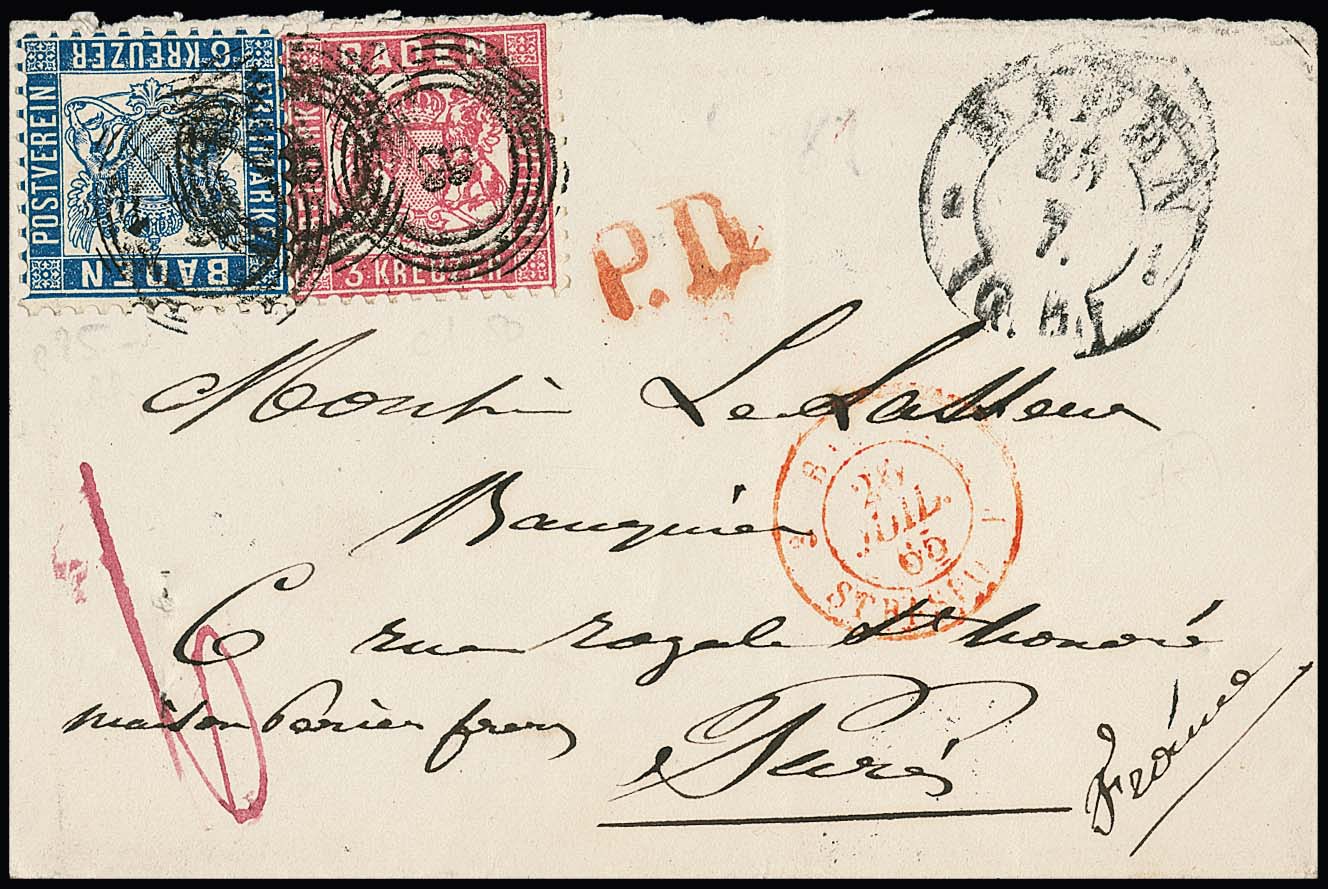 6 KREUZER
FREIMARKE
POSTVEREIN
BADEN
BADEN
3 KREUZER
P.D.
7.
Le
Banquier
26
JUIL.
65
6 rue royale St honoré
maison Périer frères
Paris
France